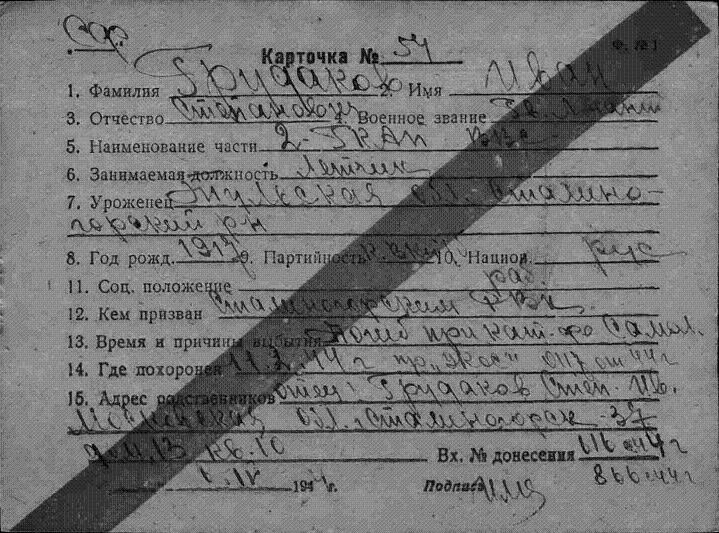 Карточка № 54
Ф. №1
1. Фамилия Грудаков 2. Имя Иван
3. Отчество Степанович 4. Военное звание Гв. Лейтен
5. Наименование части 2-ГКАП ВВС
6. Занимаемая должность Летчик
7. Уроженец Тульская обл. Сталино-
горский р-н
8. Год рожд. 9. Партийность 10. Национ. рус
11. Соц. положение раб.
12. Кем призван Сталиногорским РВК.
13. Время и причины выбытия Погиб при кат-фе Самол.
14. Где похоронен 44 г пр. 0117 от 44 г
15. Адрес родственников отец: Грудаков Степ. Ив.
Московская обл. г. Сталиногорск-37
дом. 13 кв. 10 Вх. № донесения 116 44 г
1944 г. Подпись 866-44 г